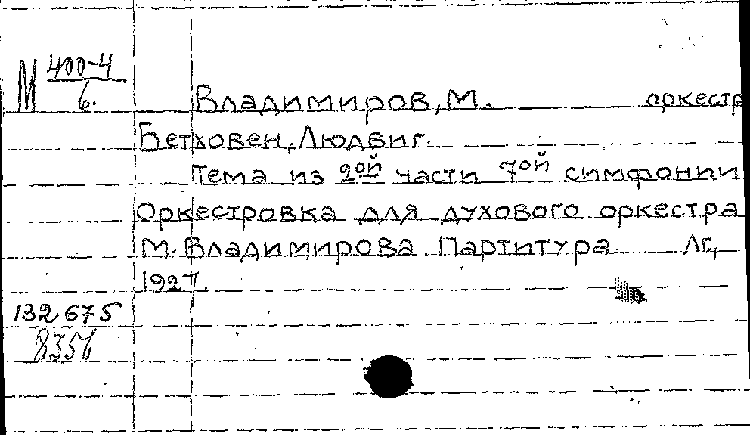 М 400-4
6.
Владимиров, М. оркестр
Бетховен, Людвиг.
Тема из 2ой части 7ой симфонии
Оркестровка для духового оркестра
М. Владимирова Партитура Лг.,
1927
132675
8356